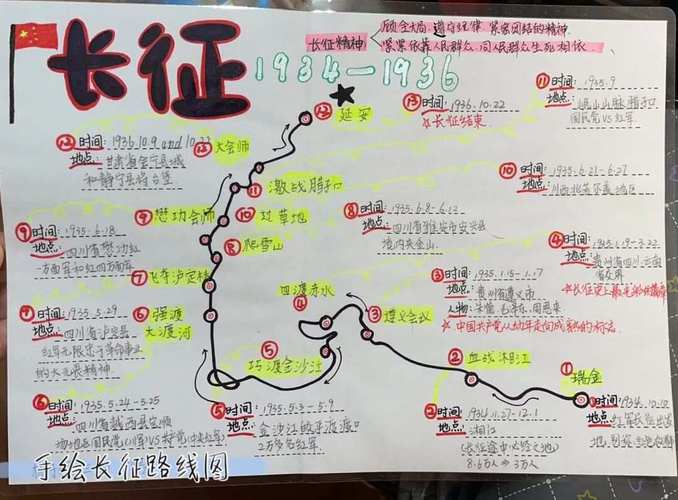 长征
1934—1936
长征精神
顾全大局、遵守纪律、紧密团结的精神
紧紧依靠人民群众，同人民群众生死相依
⑫时间: 1936.10.9 and 10.22
地点:
甘肃省会宁县城
和静宁县将台堡
⑫大会师
⑫延安
⑬时间: 1936.10.22
☆长征结束
⑪时间: 1935.9
地点: 岷山山脉腊子口
国民党VS红军
⑪激战腊子口
⑩时间: 1935.6.21-6.27
地点:
⑩过草地
⑨懋功会师
⑨时间: 1935.6.18
地点: 四川省懋功县
一方面军和红四方面军
⑧爬雪山
⑧时间: 1935.6.8-6.12
地点: 四川省雅安市宝兴县
境内夹金山
④时间:
地点: 贵州省四川、云南
⑦飞夺泸定桥
⑦时间: 1935.5.29
地点: 四川省泸定县
⑥强渡
大渡河
⑥时间: 1935.5.24-5.25
地点:
④四渡赤水
③遵义会议
③时间: 1935.1.15-1.17
地点: 贵州省遵义市
人物: 朱德 毛泽东 周恩来
☆中国共产党从幼年走向成熟的标志
⑤巧渡金沙江
⑤时间: 1935.5.3-5.9
地点: 金沙江皎平渡渡口
2万多名红军
②血战湘江
②时间: 1934.11.27-12.1
地点: 湘江
(长征途中必经之地)
8.6万人→3万人
①瑞金
①时间:
地点:
手绘长征路线图